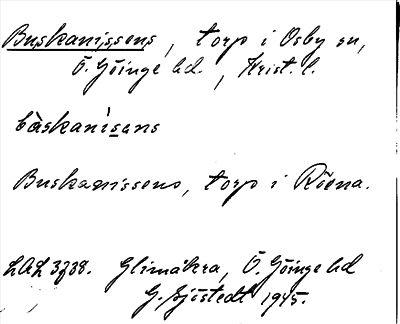 Buskanissens, torp i Osby sn,
Ö. Göinge hd., Krist. l.
bàskanísans
Buskanissens, torp i Röena.
LAL 3238. Glimåkra, Ö. Göinge hd
G. Sjöstedt 1945.